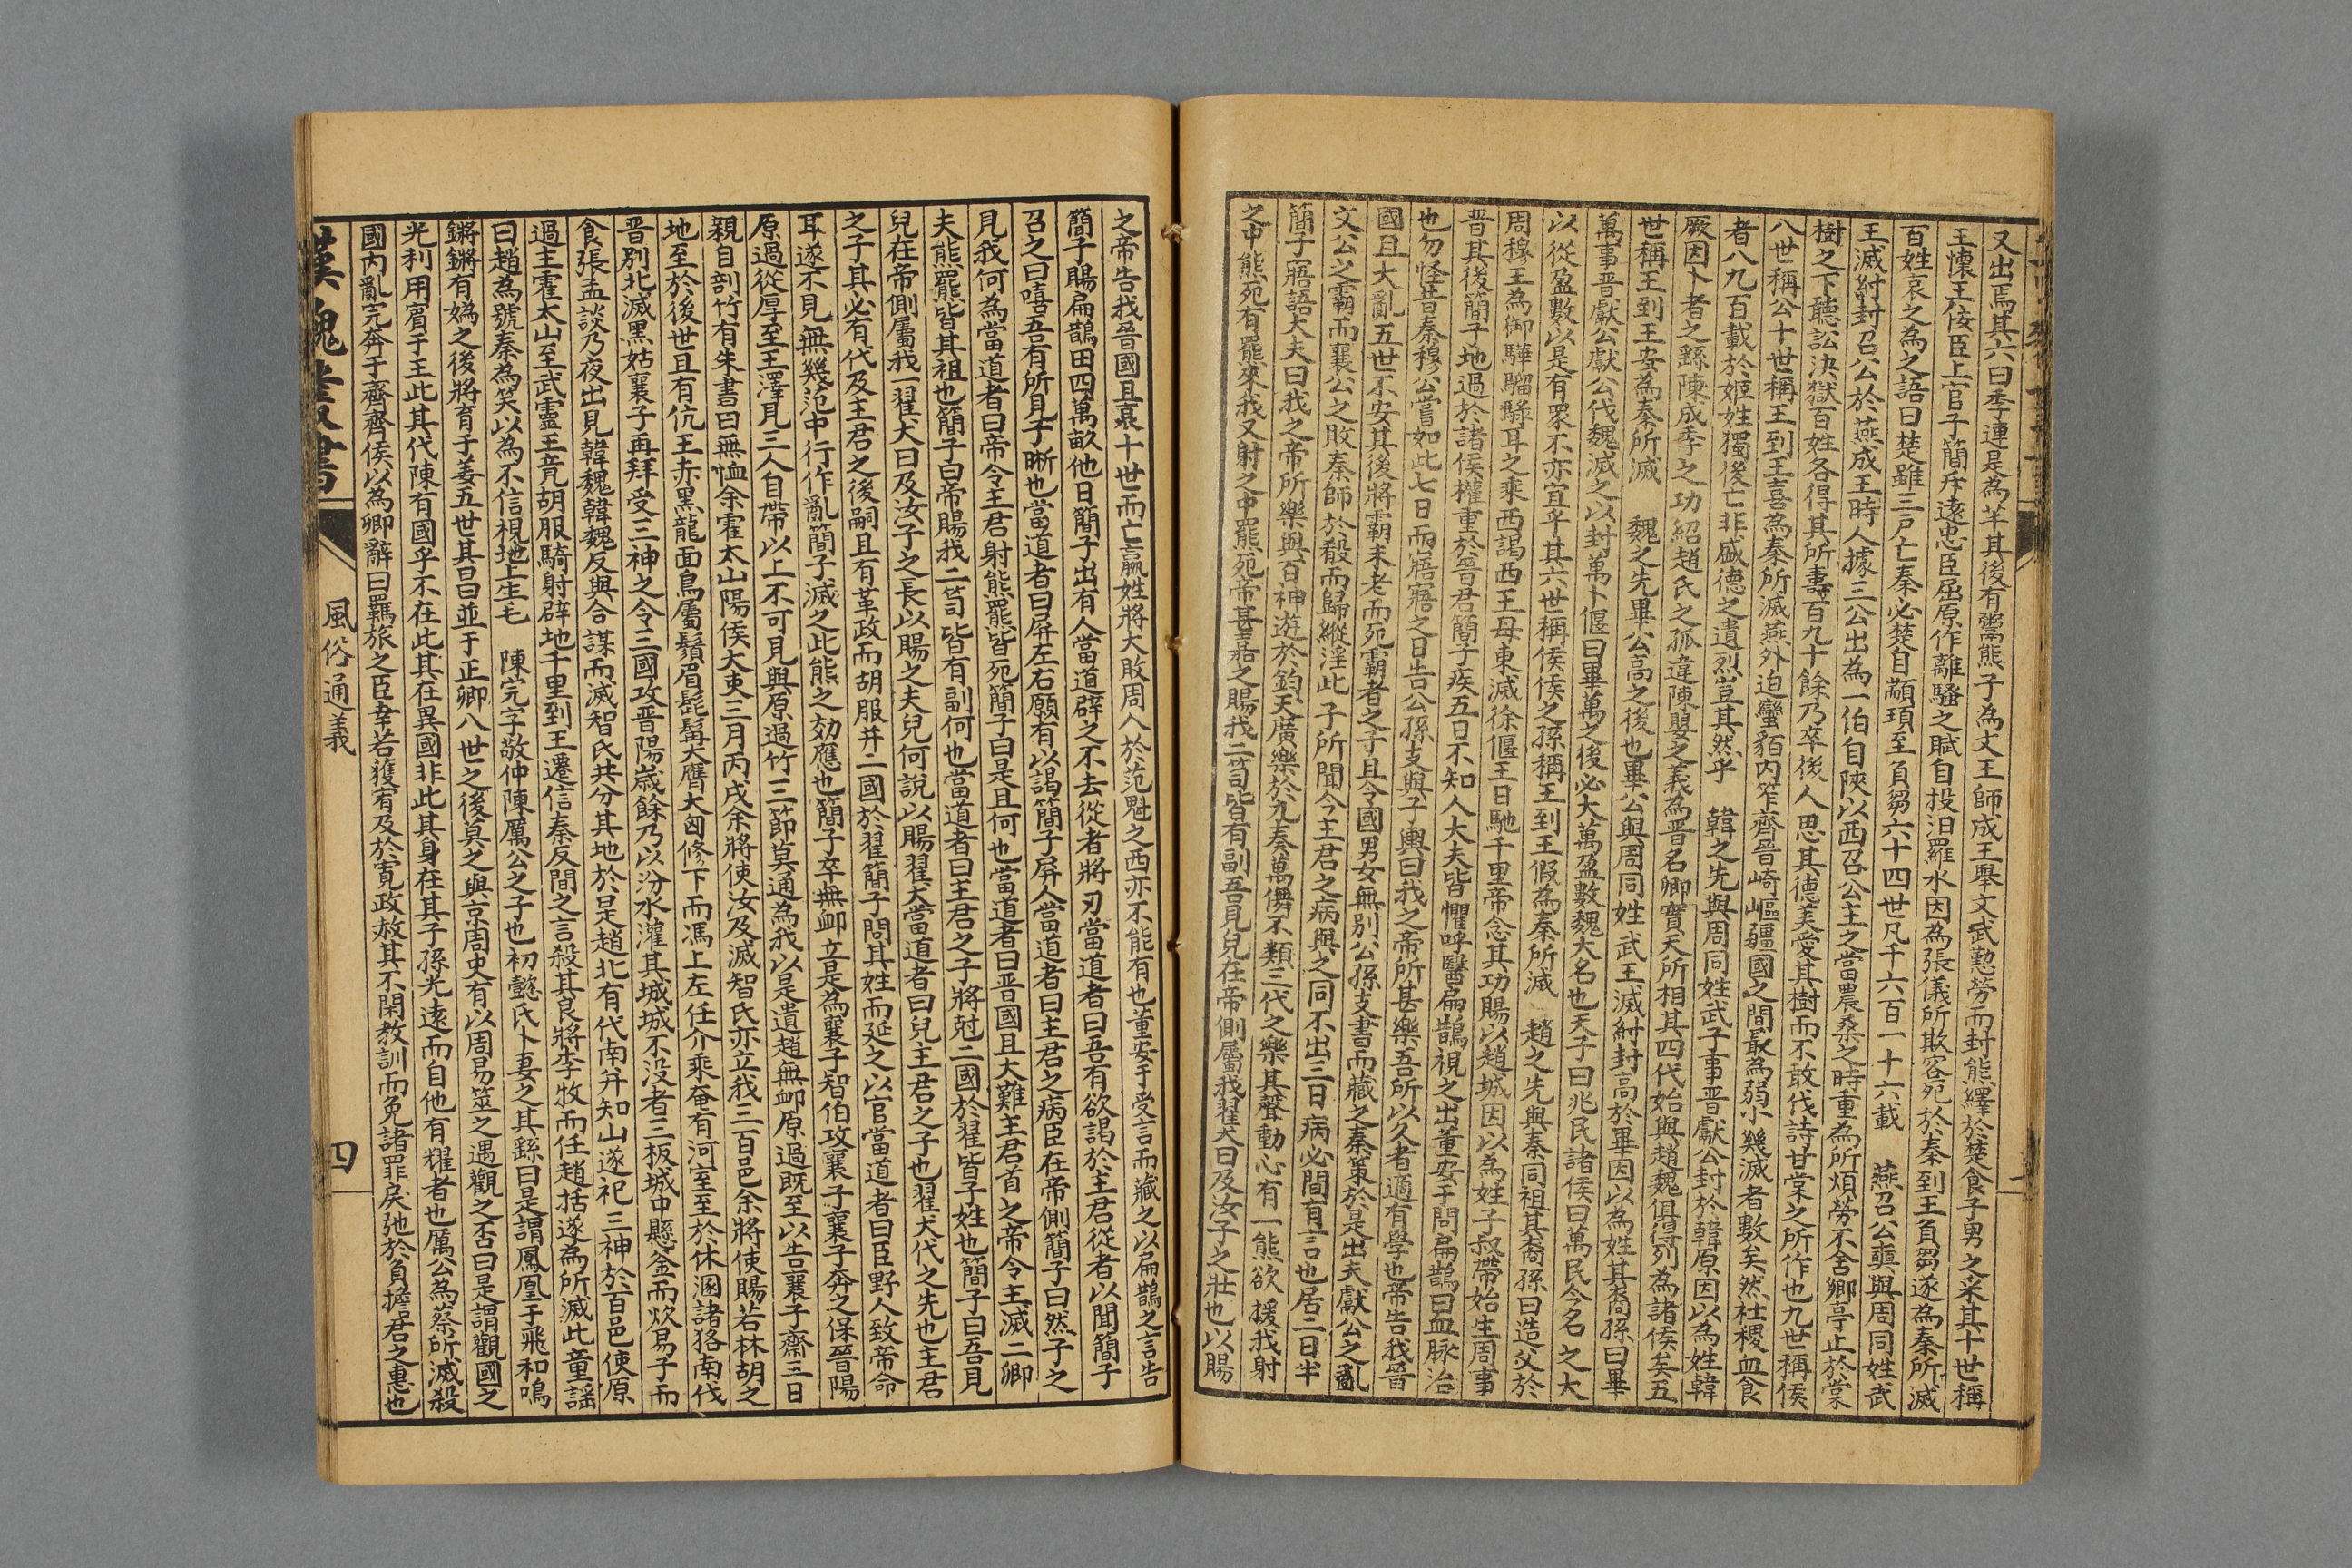 又出焉其六曰季連是為羋其後有鬻熊子為文王師成王舉文武勤勞而封熊繹於楚食子男之采其十世稱
王懷王佞臣上官子簡斥遠忠臣屈原作離騷之賦自投汨羅水因為張儀所欺客死於秦到王負芻遂為秦所滅
百姓哀之為之語曰楚雖三戶亡秦必楚自顓頊至負芻六十四世凡千六百一十六載 燕召公奭與周同姓武
王滅紂封召公於燕成王時人據三公出為二伯自陝以西召公主之當農桑之時重為所煩勞不舍鄉亭止於棠
樹之下聽訟決獄百姓各得其所壽百九十餘乃卒後人思其德美愛其樹而不敢伐詩甘棠之所作也九世稱侯
八世稱公十世稱王到王喜為秦所滅燕外迫蠻貊內笮齊晉崎嶇疆國之間最為弱小幾滅者數矣然社稷血食
者八九百載於姬姓獨後亡非盛德之遺烈豈其然乎 韓之先與周同姓武子事晉獻公封於韓原因以為姓韓
厥因卜者之繇陳成季之功紹趙氏之孤違陳嬰之義為晉名卿實天所相其四代始與趙魏俱得列為諸侯矣五
世稱王到王安為秦所滅 魏之先畢公高之後也畢公與周同姓武王滅紂封高於畢因以為姓其裔孫曰畢
萬事晉獻公獻公伐魏滅之以封萬卜偃曰畢萬之後必大萬盈數魏大名也天子曰兆民諸侯曰萬民今名之大
以從盈數以是有眾不亦宜乎其六世稱侯侯之孫稱王到王假為秦所滅 趙之先與秦同祖其裔孫曰造父於
周穆王為御驊騮騄耳之乘西謁西王母東滅徐偃王日馳千里帝念其功賜以趙城因以為姓子叔帶始生周事
晉其後簡子地過於諸侯權重於晉君簡子疾五日不知人大夫皆懼呼醫扁鵲視之出董安于問扁鵲曰血脉治
也勿怪昔秦穆公嘗如此七日而寤寤之日告公孫支與子輿曰我之帝所甚樂吾所以久者適有學也帝告我晉
國且大亂五世不安其後將霸未老而死霸者之子且令國男女無別公孫支書而藏之秦策於是出夫獻公之亂
文公之霸而襄公之敗秦師於殽而歸縱淫此子所聞今主君之病與之同不出三日病必間有言也居二日半
簡子寤語大夫曰我之帝所樂與百神遊於鈞天廣樂於九奏萬儛不類三代之樂其聲動心有一熊欲援我射
之中熊死有羆來我又射之中羆死帝甚嘉之賜我二笥皆有副吾見兒在帝側屬我翟犬曰及汝子之壯也以賜
之帝告我晉國且衰十世而亡嬴姓將大敗周人於范魁之西亦不能有也董安于受言而藏之以扁鵲之言告
簡子賜扁鵲田四萬畝他日簡子出有人當道辟之不去從者將刃當道者曰吾有欲謁於主君從者以聞簡子
召之曰嘻吾有所見子晰也當道者曰屏左右願有以謁簡子屏人當道者曰主君之病臣在帝側簡子曰然子之
見我何為當道者曰帝令主君射熊羆皆死簡子曰是且何也當道者曰晉國且大難主君首之帝令主滅二卿
夫熊羆皆其祖也簡子曰帝賜我二笥皆有副何也當道者曰主君之子將尅二國於翟皆子姓也簡子曰吾見
兒在帝側屬我一翟犬曰及汝子之長以賜之夫兒何說以賜翟犬當道者曰兒主君之子也翟犬代之先也主君
之子其必有代及主君之後嗣且有革政而胡服并二國於翟簡子問其姓而延之以官當道者曰臣野人致帝命
耳遂不見 無幾范中行作亂簡子滅之此熊之効應也簡子卒無卹立是為襄子智伯攻襄子襄子奔之保晉陽
原過從厚至王澤見三人自帶以上不可見與原過竹二節莫通為我以是遺趙無卹原過既至以告襄子齋三日
親自剖竹有朱書曰無恤余霍太山陽侯大吏三月丙戌余將使汝及滅智氏亦立我三百邑余將使賜若林胡之
地至於後世且有伉王赤黑龍面鳥屬鬢眉髭髯大膺大匈修下而馮上左任介乘奄有河室至於休溷諸狢南伐
晉別北滅黑姑襄子再拜受三神之令三國攻晉陽歲餘乃以汾水灌其城城不沒者三板城中懸釜而炊易子而
食張孟談乃夜出見韓魏韓魏反與合謀而滅智氏共分其地於是趙北有代南并知山遂祀三神於百邑使原
過主霍太山至武靈王竟胡服騎射辟地千里到王遷信秦反間之言殺其良將李牧而任趙括遂為所滅此童謠
曰趙為號秦為笑以為不信視地上生毛 陳完字敬仲陳厲公之子也初懿氏卜妻之其繇曰是謂鳳凰于飛和鳴
鏘鏘有媯之後將育于姜五世其昌並于正卿八世之後莫之與京周史有以周易筮之遇觀之否曰是謂觀國之
光利用賓于王此其代陳有國乎不在此其在異國非此其身在其子孫光遠而自他有耀者也厲公為蔡所滅殺
國內亂完奔于齊齊侯以為卿辭曰羈旅之臣幸若獲宥及於寬政赦其不閑教訓而免諸罪戾弛於負擔君之惠也
漢魏叢書
風俗通義
四